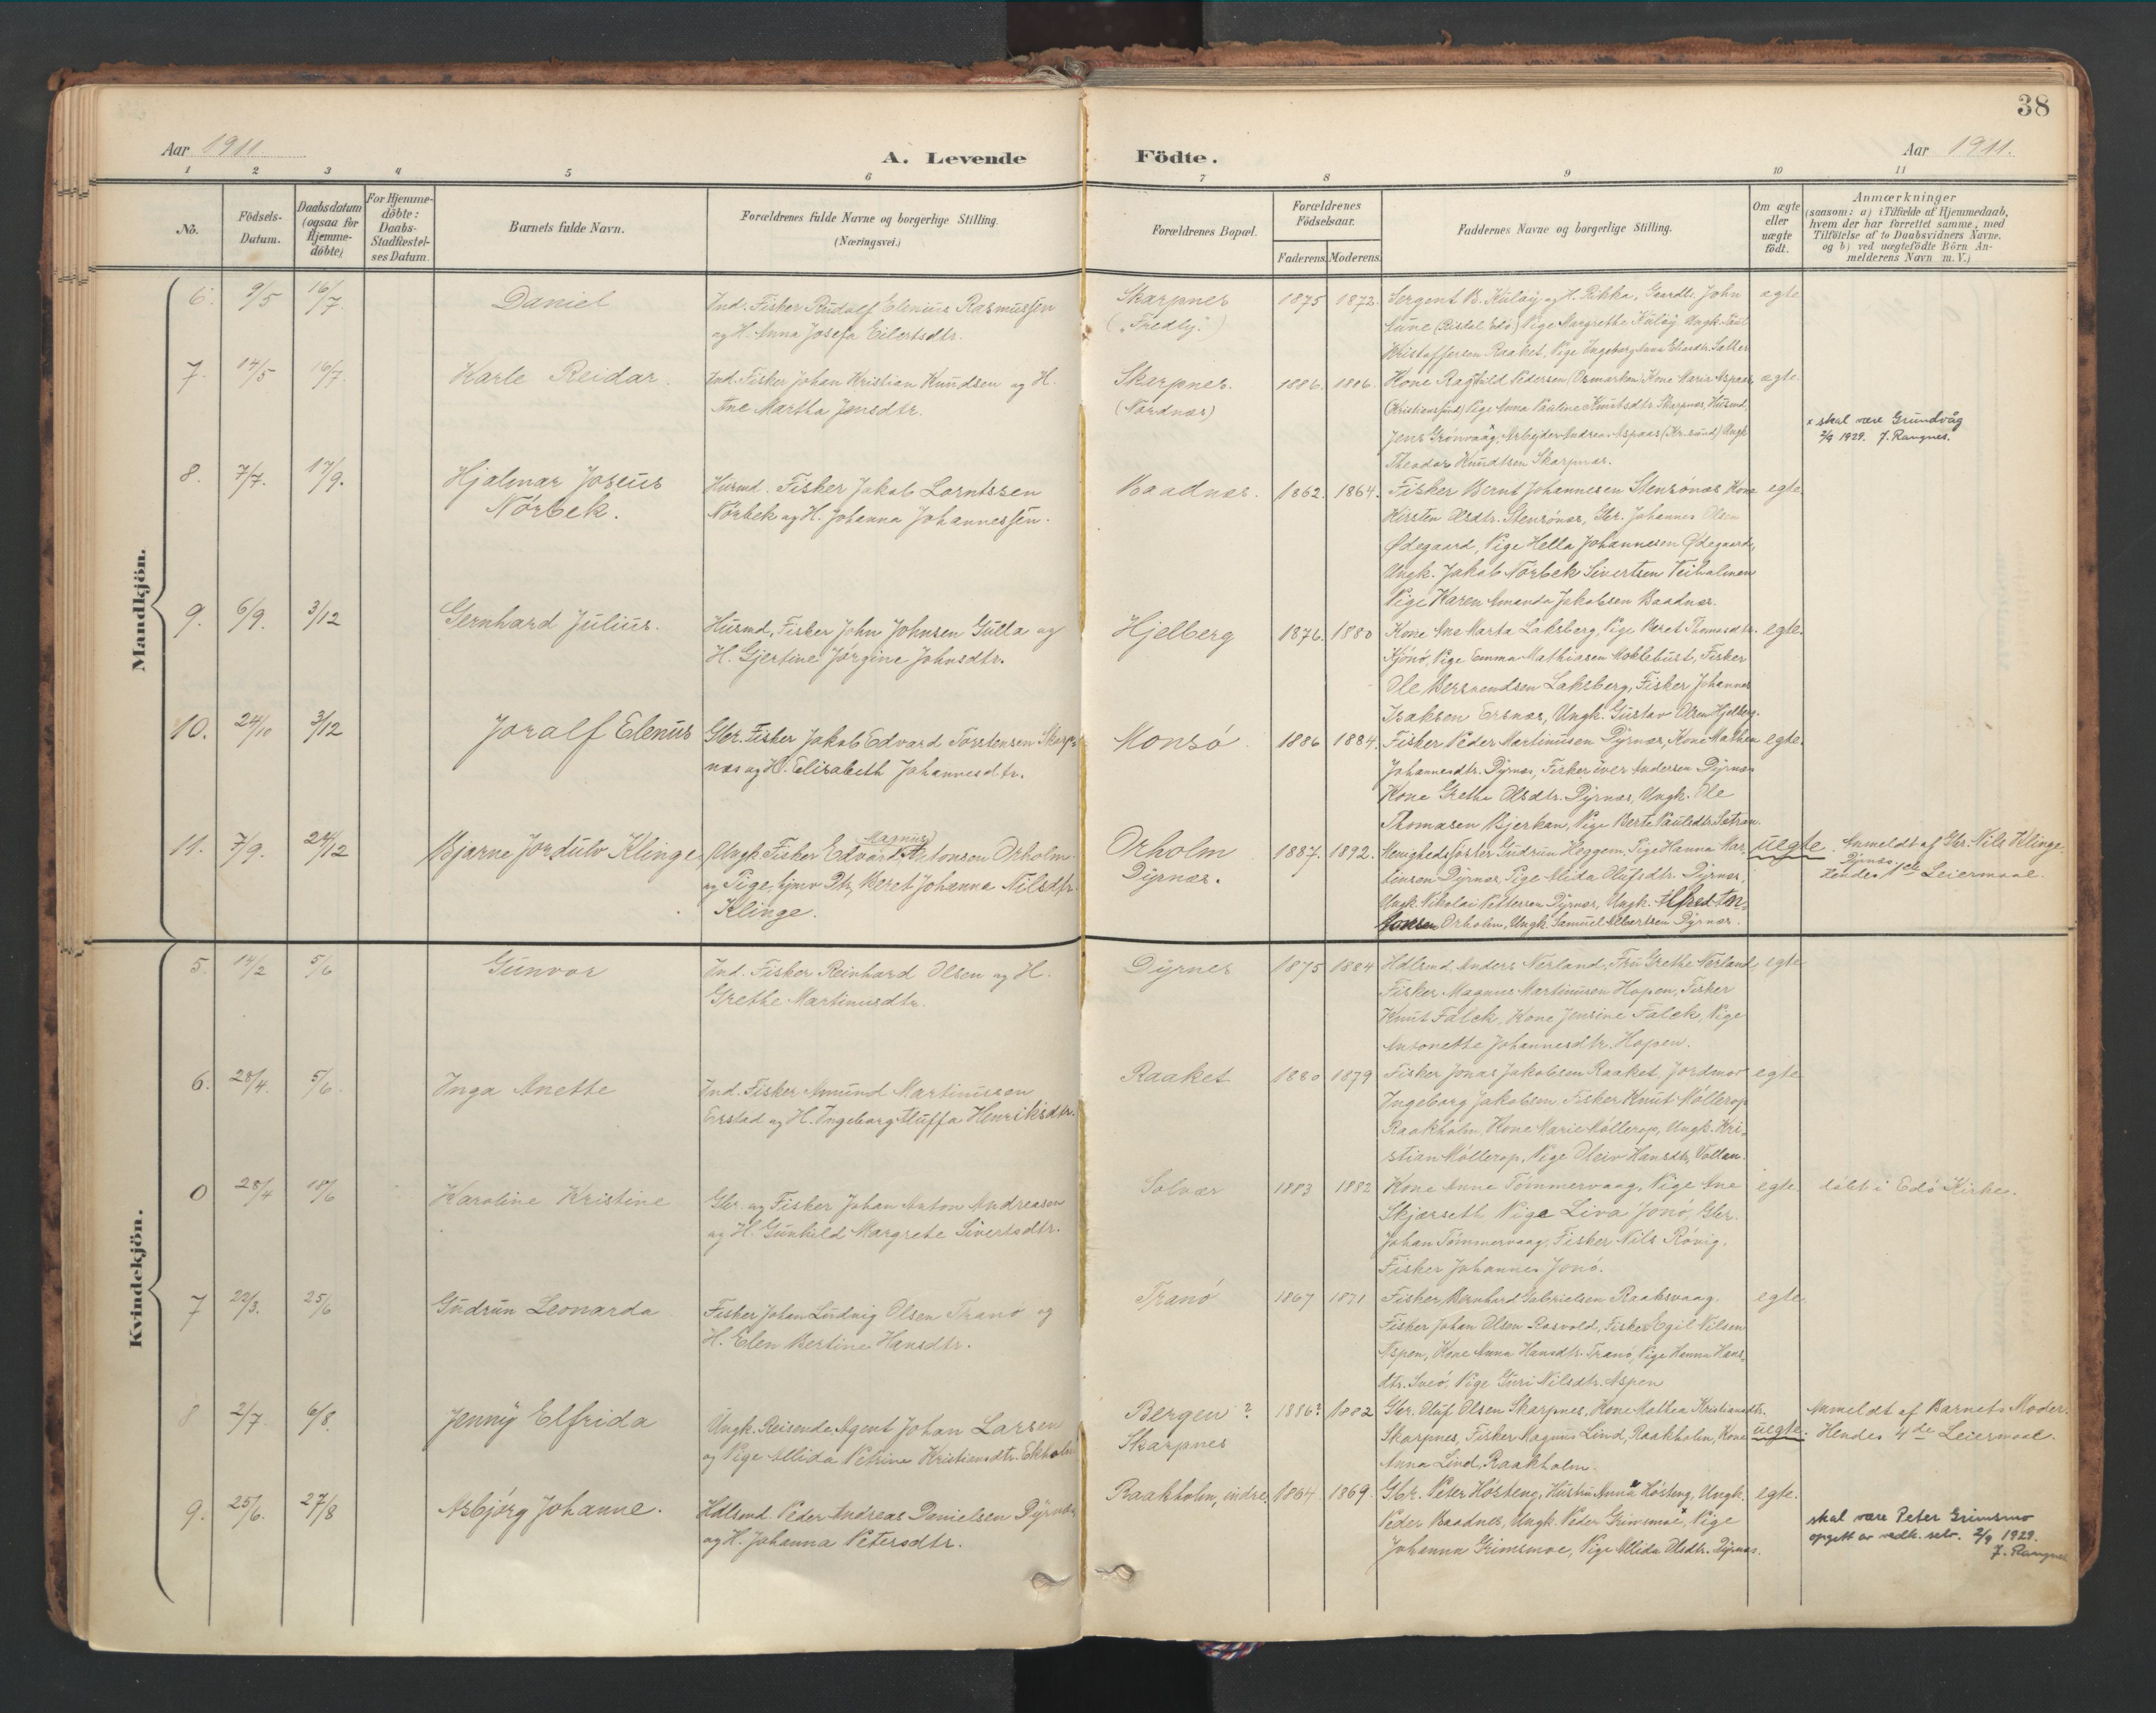 38
Aar 1911
A. Levende Födte.
Aar 1911.
1 2 3 4 5 6 7 8 9 10 11
No.
Födsels-Datum.
Daabsdatum (ogsaa for Hjemme-döbte)
For Hjemme-döbte: Daabs-Stadfæstel-ses Datum.
Barnets fulde Navn.
Forældrenes fulde Navne og borgerlige Stilling. (Næringsvei.)
Forældrenes Bopæl.
Forældrenes Födselsaar.
Faderens. Moderens.
Faddernes Navne og borgerlige Stilling.
Om ægte eller uægte födt.
Anmærkninger
(saasom: a) i Tilfælde af Hjemmedaab,
hvem der har forrettet samme, med
Tilföielse af to Daabsvidners Navne,
og b) ved uægtefödte Börn An-
melderens Navn m. V.)
Mandkjön.
6. 9/5 16/7. Daniel
Ind. Fisker Rudolf Elenius Rasmussen
og H. Anna Josefa Eilertsdtr.
Skarpnes
("Fredly")
1875 1872.
Sergent B. Kuløy og H. Rikka, Gaardbr. John
Kristoffersen Raaket, Pige Ingeborg Anna
ægte
7. 14/5 16/7. Karle Reidar.
Ind. Fisker Johan Kristian Knudsen og H.
Ane Martha Jensdtr.
Skarpnes.
(Nordnæs)
1886. 1886.
Kone Ragnhild Pedersen (Osmarken), Kone Marie Aspaas
(Kristianssund) Pige Anna Pauline Knutsdtr. Skarpnes, Husmd.
Jens Grönvaag, Arbeider Andreas Aspaas (Kr.sund) Ungk.
Theodor Knudtsen Skarpnæs.
ægte.
x skal være Grundvåg
2/9 1929. J. Rangnes.
8. 7/7. 17/9. Hjalmar Joseus
Nörbek.
Husmd. Fisker Jakob Lorntssen
Nörbek og H. Johanna Johannessen.
Baadnæs. 1862. 1864.
Fisker Bernt Johannesen Stensönæs Kone
Kirsten Olsdtr. Stensönæs, Gbr. Johannes Olsen
Ødegaard, Pige Hella Johannesen Ødegaard,
Ungk. Jakob Nörbek Sivertsen Veiholmen
Pige Karen Amanda Jakobsen Baadnæs.
egte.
9. 6/9. 3/12 Gernhard Julius.
Husmd, Fisker John Johnsen Gulla og
H. Gjertine Jörgine Johnsdtr.
Hjelberg 1876. 1880
Kone Ane Marta Laksberg, Pige Beret Thomasdtr.
Kjönö, Pige Emma Mathiasen Moklebust, Fisker
Ole Bersvendsen Laksberg, Fisker Johannes
Isaksen Ersnæs, Ungk. Gustav Olsen Hjelberg.
egte.
10. 24/10 3/12 Joralf Elenus
Gbr. Fisker Jakob Edvard Torstensen Skarp-
næs og H. Elisabeth Johannesdtr.
Monsö 1886 1884.
Fisker Peder Martinusen Dyrnæs, Kone Mathea
Johannesdtr. Dyrnæs, Fisker Iver Andersen Dyrnæs
Kone Grethe Olsdtr. Dyrnæs, Ungk. Ole
Thomasen Bjerkan, Pige Berte Paulsdtr. Sætran.
egte.
11. 7/9. 24/12 Bjarne Jordulv Klinge,
Magnus
Ungk. Fisker Edvard Antonsen Orholm
og Pige, Beret Johanna Nilsdtr.
Klinge.
Orholm
Dyrnæs.
1887. 1892.
Menighedssöster Gudrun Heggem, Pige Hanna Mar-
tinsen Dyrnæs Pige Alida Olufsdtr. Dyrnæs,
Ungk. Nikolai Pettersen Dyrnæs, Ungk. Alfred An-
tonsen Orholm, Ungk. Samuel Albertsen Dyrnæs.
uegte
Anmeldt af Gbr. Nils Klinge
Dyrnæs.
Hendes Leiermaal.
Kvindekjön.
5. 14/2 5/6 Gunvor
Ind. Fisker Reinhard Olsen og H.
Grethe Martinusdtr.
Dyrnes 1875 1884
Hdlsmd. Anders Nerland, Fru Grethe Nerland,
Fisker Magnus Martinusen Hopen, Fisker
Knut Falck, Kone Jensine Falck, Pige
Antonette Johannesdtr. Hopen.
egte
6. 28/4. 5/6. Inga Anette
Ind. Fisker Amund Martinusen
Erstad og H. Ingeborg Huffa Henriksdtr.
Raaket 1880 1879
Fisker Jonas Jakobsen Raaket, Jordmor
Ingeborg Jakobsen, Fisker Knut Möllerop
Raakholm, Kone Marie Möllerop, Ungk. Kri-
stian Möllerop, Pige Oleiv Hansdtr. Vollan.
egte
0 28/4 18/6 Karoline Kristine
Gbr. og Fisker Johan Anton Andreasen
og H. Gunhild Margrete Sivertsdtr.
Solvær 1883 1882
Kone Anne Tömmervaag, Pige Ane
Skjærseth Pige Liva Jonö, Gbr.
Johan Tömmervaag, Fisker Nils Rövig,
Fisker Johannes Jonö.
egte.
döbt i Edö Kirke.
7 22/3. 25/6 Gudrun Leonarda
Fisker Johan Ludvig Olsen Tranö og
H. Elen Bertine Hansdtr.
Tranö 1867 1871
Fisker Bernhard Gabrielsen Raaksvaag.
Fisker Johan Olsen Rosvold, Fisker Egil Nilsen
Aspen, Kone Anna Hansdtr. Tranö, Pige Hanna Hans-
dtr. Sveö, Pige Guri Nilsdtr. Aspen
egte.
8 2/7. 6/8. Jenny Elfrida
Ungk. Reisende, Agent Johan Larsen
og Pige Allida Petrine Kristiansdtr. Ekholm
Bergen?
Skarpnes
1886? 1882
Gbr. Oluf Olsen Skarpnes, Kone Mathea Kristiansdtr.
Skarpnes, Fisker Magnus Lind, Raakholm, Kone
Anna Lind, Raakholm.
uegte.
Anmeldt af Barnets Moder.
Hendes 4de Leiermaal.
9. 25/6. 27/8 Asbjörg Johanne.
Hdlsmd. Peder Andreas Danielsen Dyrnæs
og H. Johanna Petersdtr.
Raakholm, indre. 1864 1869.
Gbr. Peter Hösteng, Hustru Anna Hösteng, Ungk.
Peder Baadnes, Ungk. Peder Grimsmo x, Pige
Johanna Grimsmoe, Pige Allida Olsdtr. Dyrnæs.
egte.
skal være Peter Grimsmo
opgitt av vedk. selv. 2/9 1929.
J. Rangnes